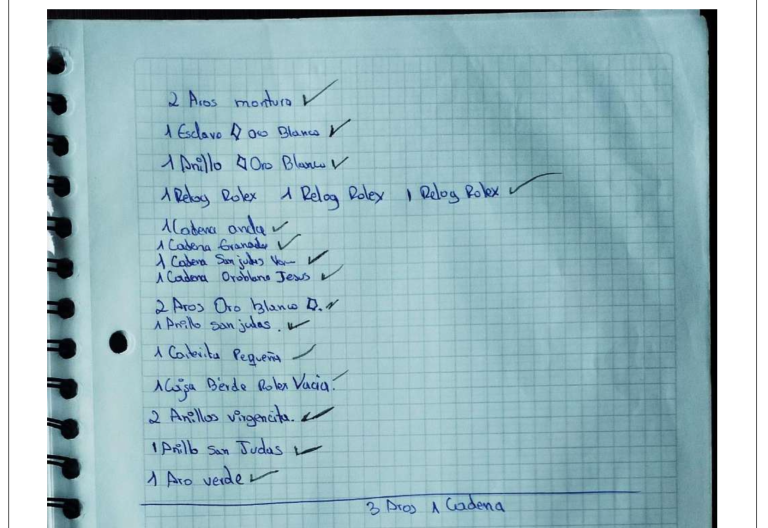 2 Aros montura ✓
1 Esclavo ◊ Oro Blanco ✓
1 Anillo ◊ Oro Blanco ✓
1 Relog Rolex 1 Relog Rolex 1 Relog Rolex ✓
1 Cadena onda ✓
1 Cadena Granade ✓
1 Cadena San judas ✓
1 Cadena Oroblano Jesus ✓
2 Aros Oro blanco ◊. ✓
1 Anillo san judas. ✓
1 Carterita Pequeña ✓
1 Caja Berde Rolex Vacia. ✓
2 Anillos virgencita. ✓
1 Anillo San Judas ✓
1 Aro verde ✓
3 Aros 1 Cadena